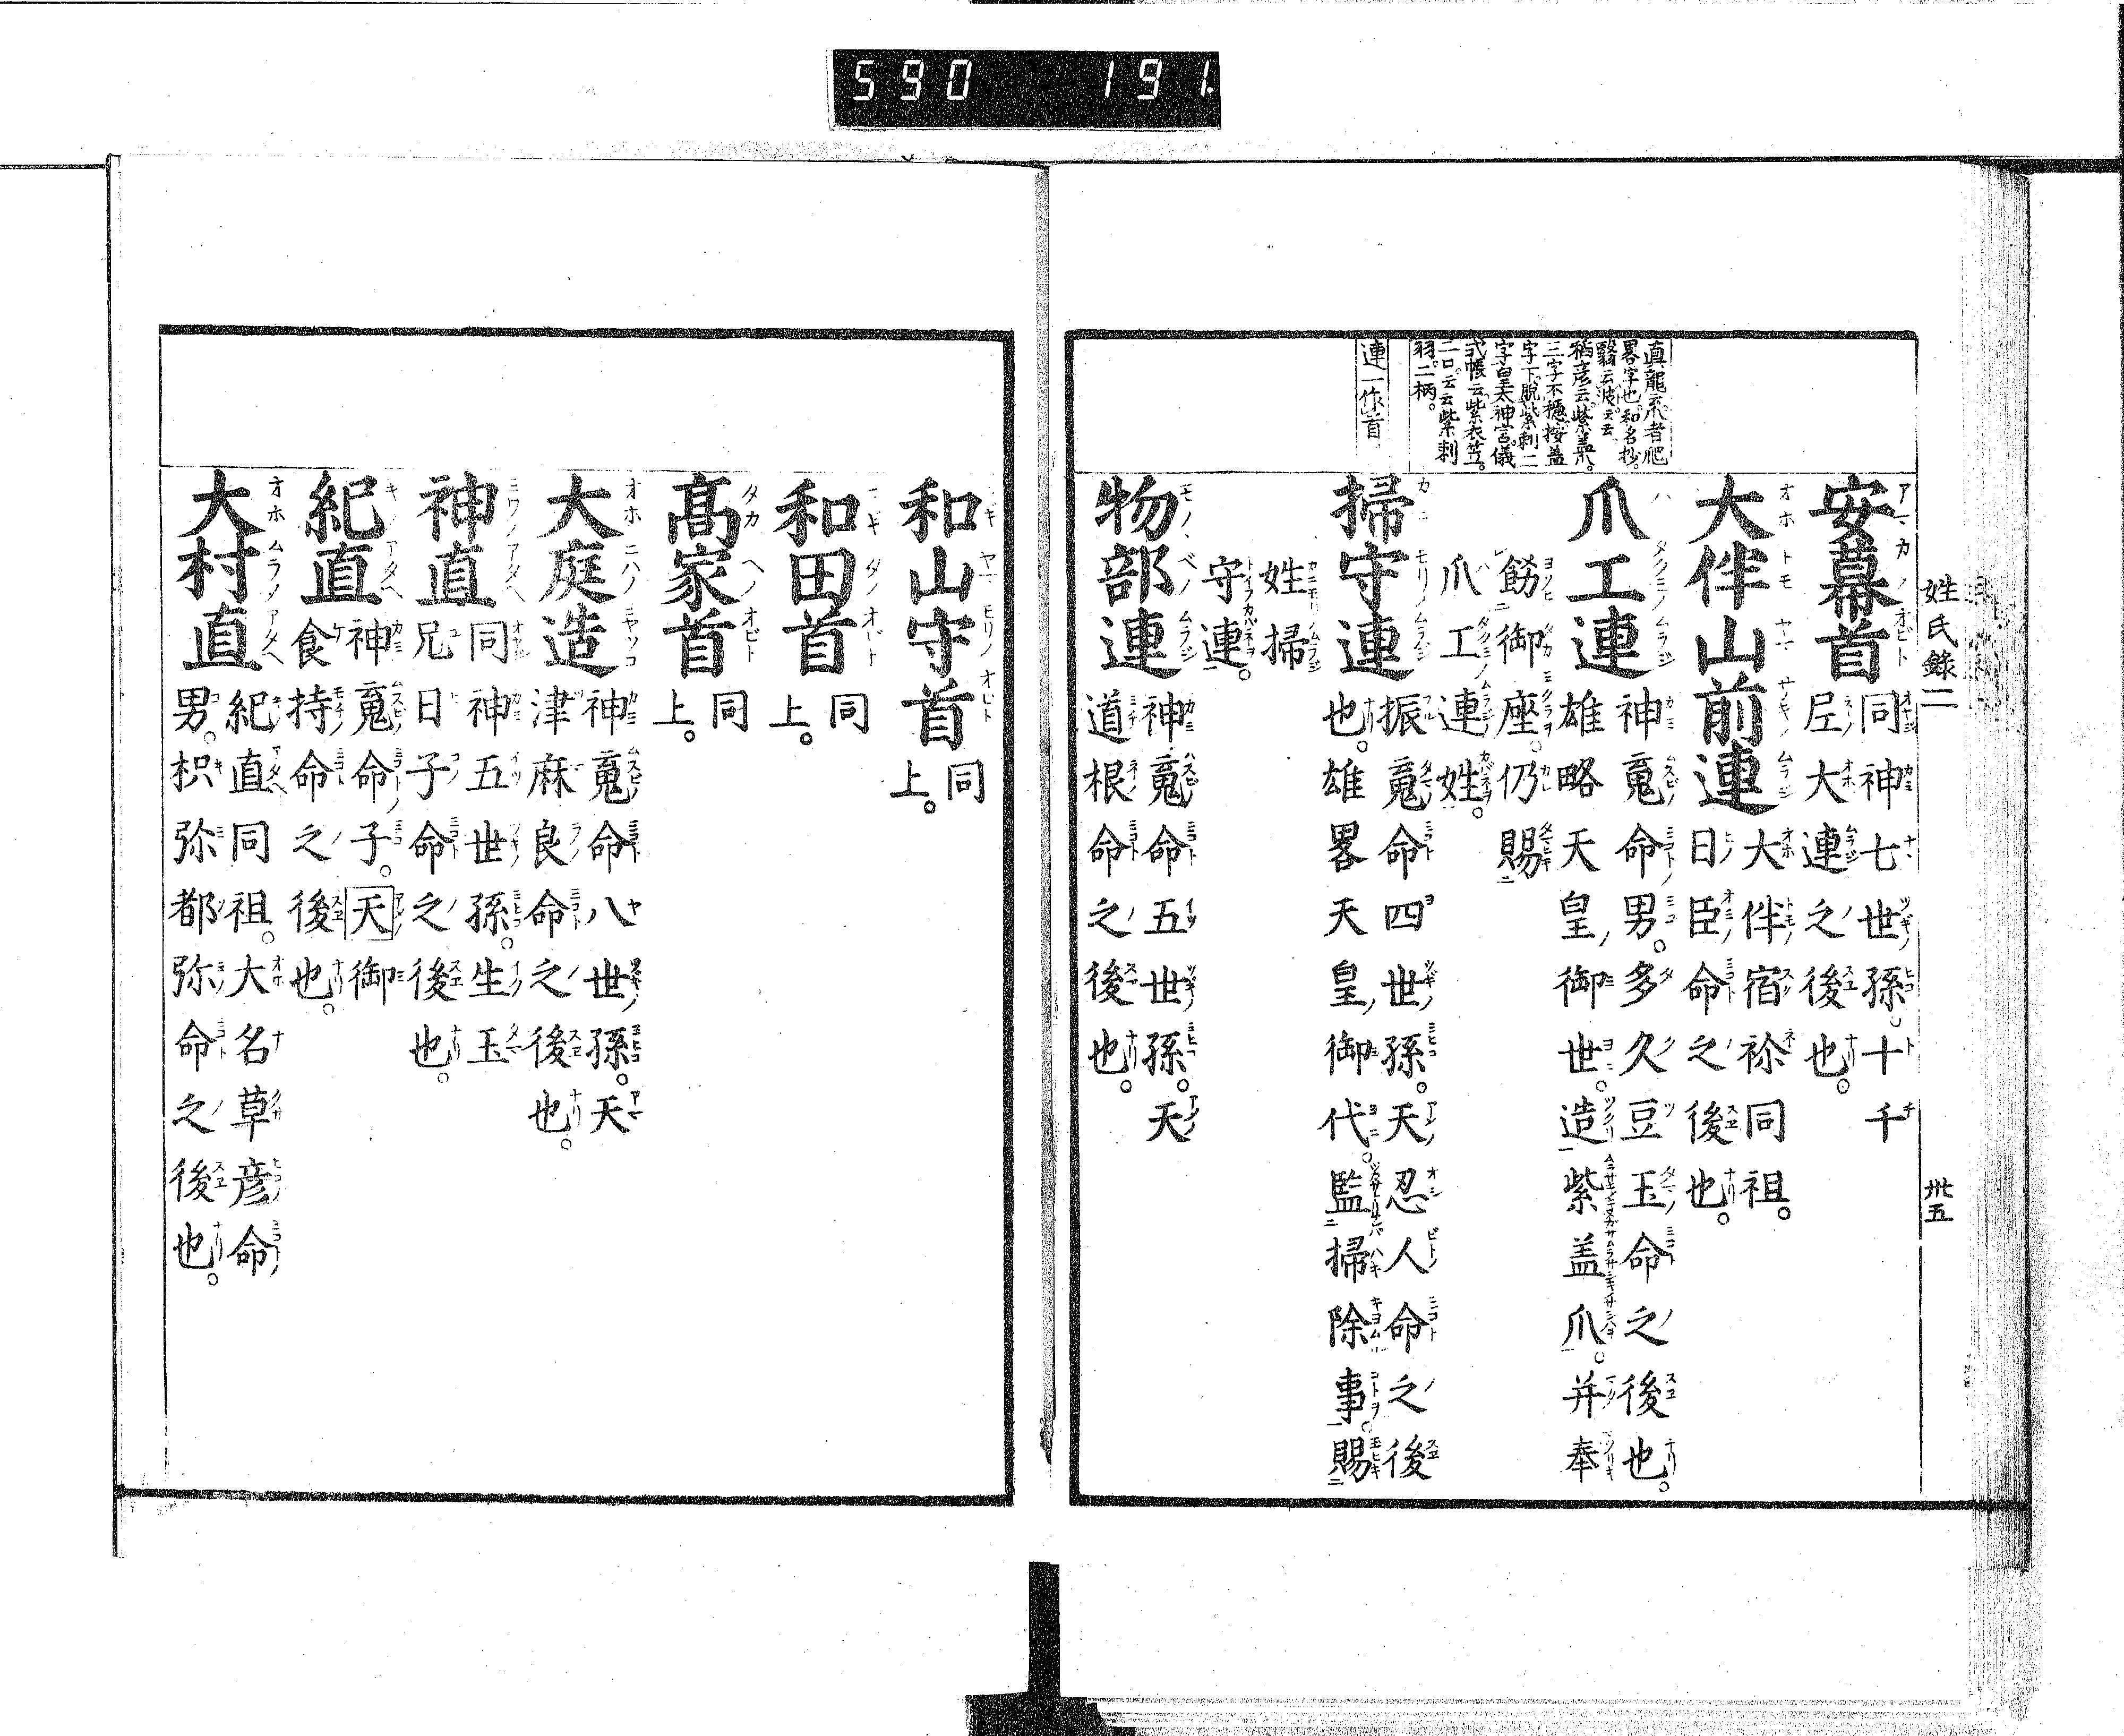 590 191
姓氏錄二
卅五
真龍云爪者爬
畧字也和名抄
翳云波云云
稻彥云紫盖爪
三字不穩按盖
字下脫紫刺二
字皇太神宮儀
式帳云紫衣笠
二口云云紫刺
羽二柄
連一作首
安幕首
同神七世孫十千
尼大連之後也
大伴山前連
大伴宿祢同祖
日臣命之後也
爪工連
神䰟命男多久豆玉命之後也
雄略天皇御世造紫盖爪并奉
餝御座仍賜
爪工連姓
掃守連
振䰟命四世孫天忍人命之後
也雄畧天皇御代監掃除事賜
姓掃
守連
物部連
神䰟命五世孫天
道根命之後也
和山守首
同
上
和田首
同
上
髙家首
同
上
大庭造
神䰟命八世孫天
津麻良命之後也
神直
同神五世孫生玉
兄日子命之後也
紀直
神䰟命子天御
食持命之後也
大村直
紀直同祖大名草彥命
男枳弥都弥命之後也